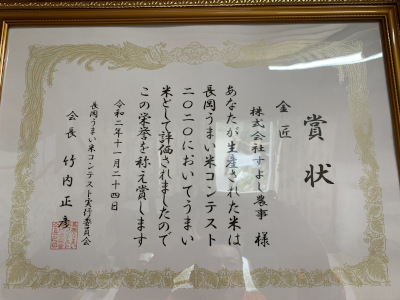 賞状
金匠
株式会社すよし農事 様
あなたが生産された米は
長岡うまい米コンテスト
二〇二〇においてうまい
米として評価されましたので
この栄誉を称え賞します
令和二年十一月二十四日
長岡うまい米コンテスト実行委員会
会長 竹内正彦